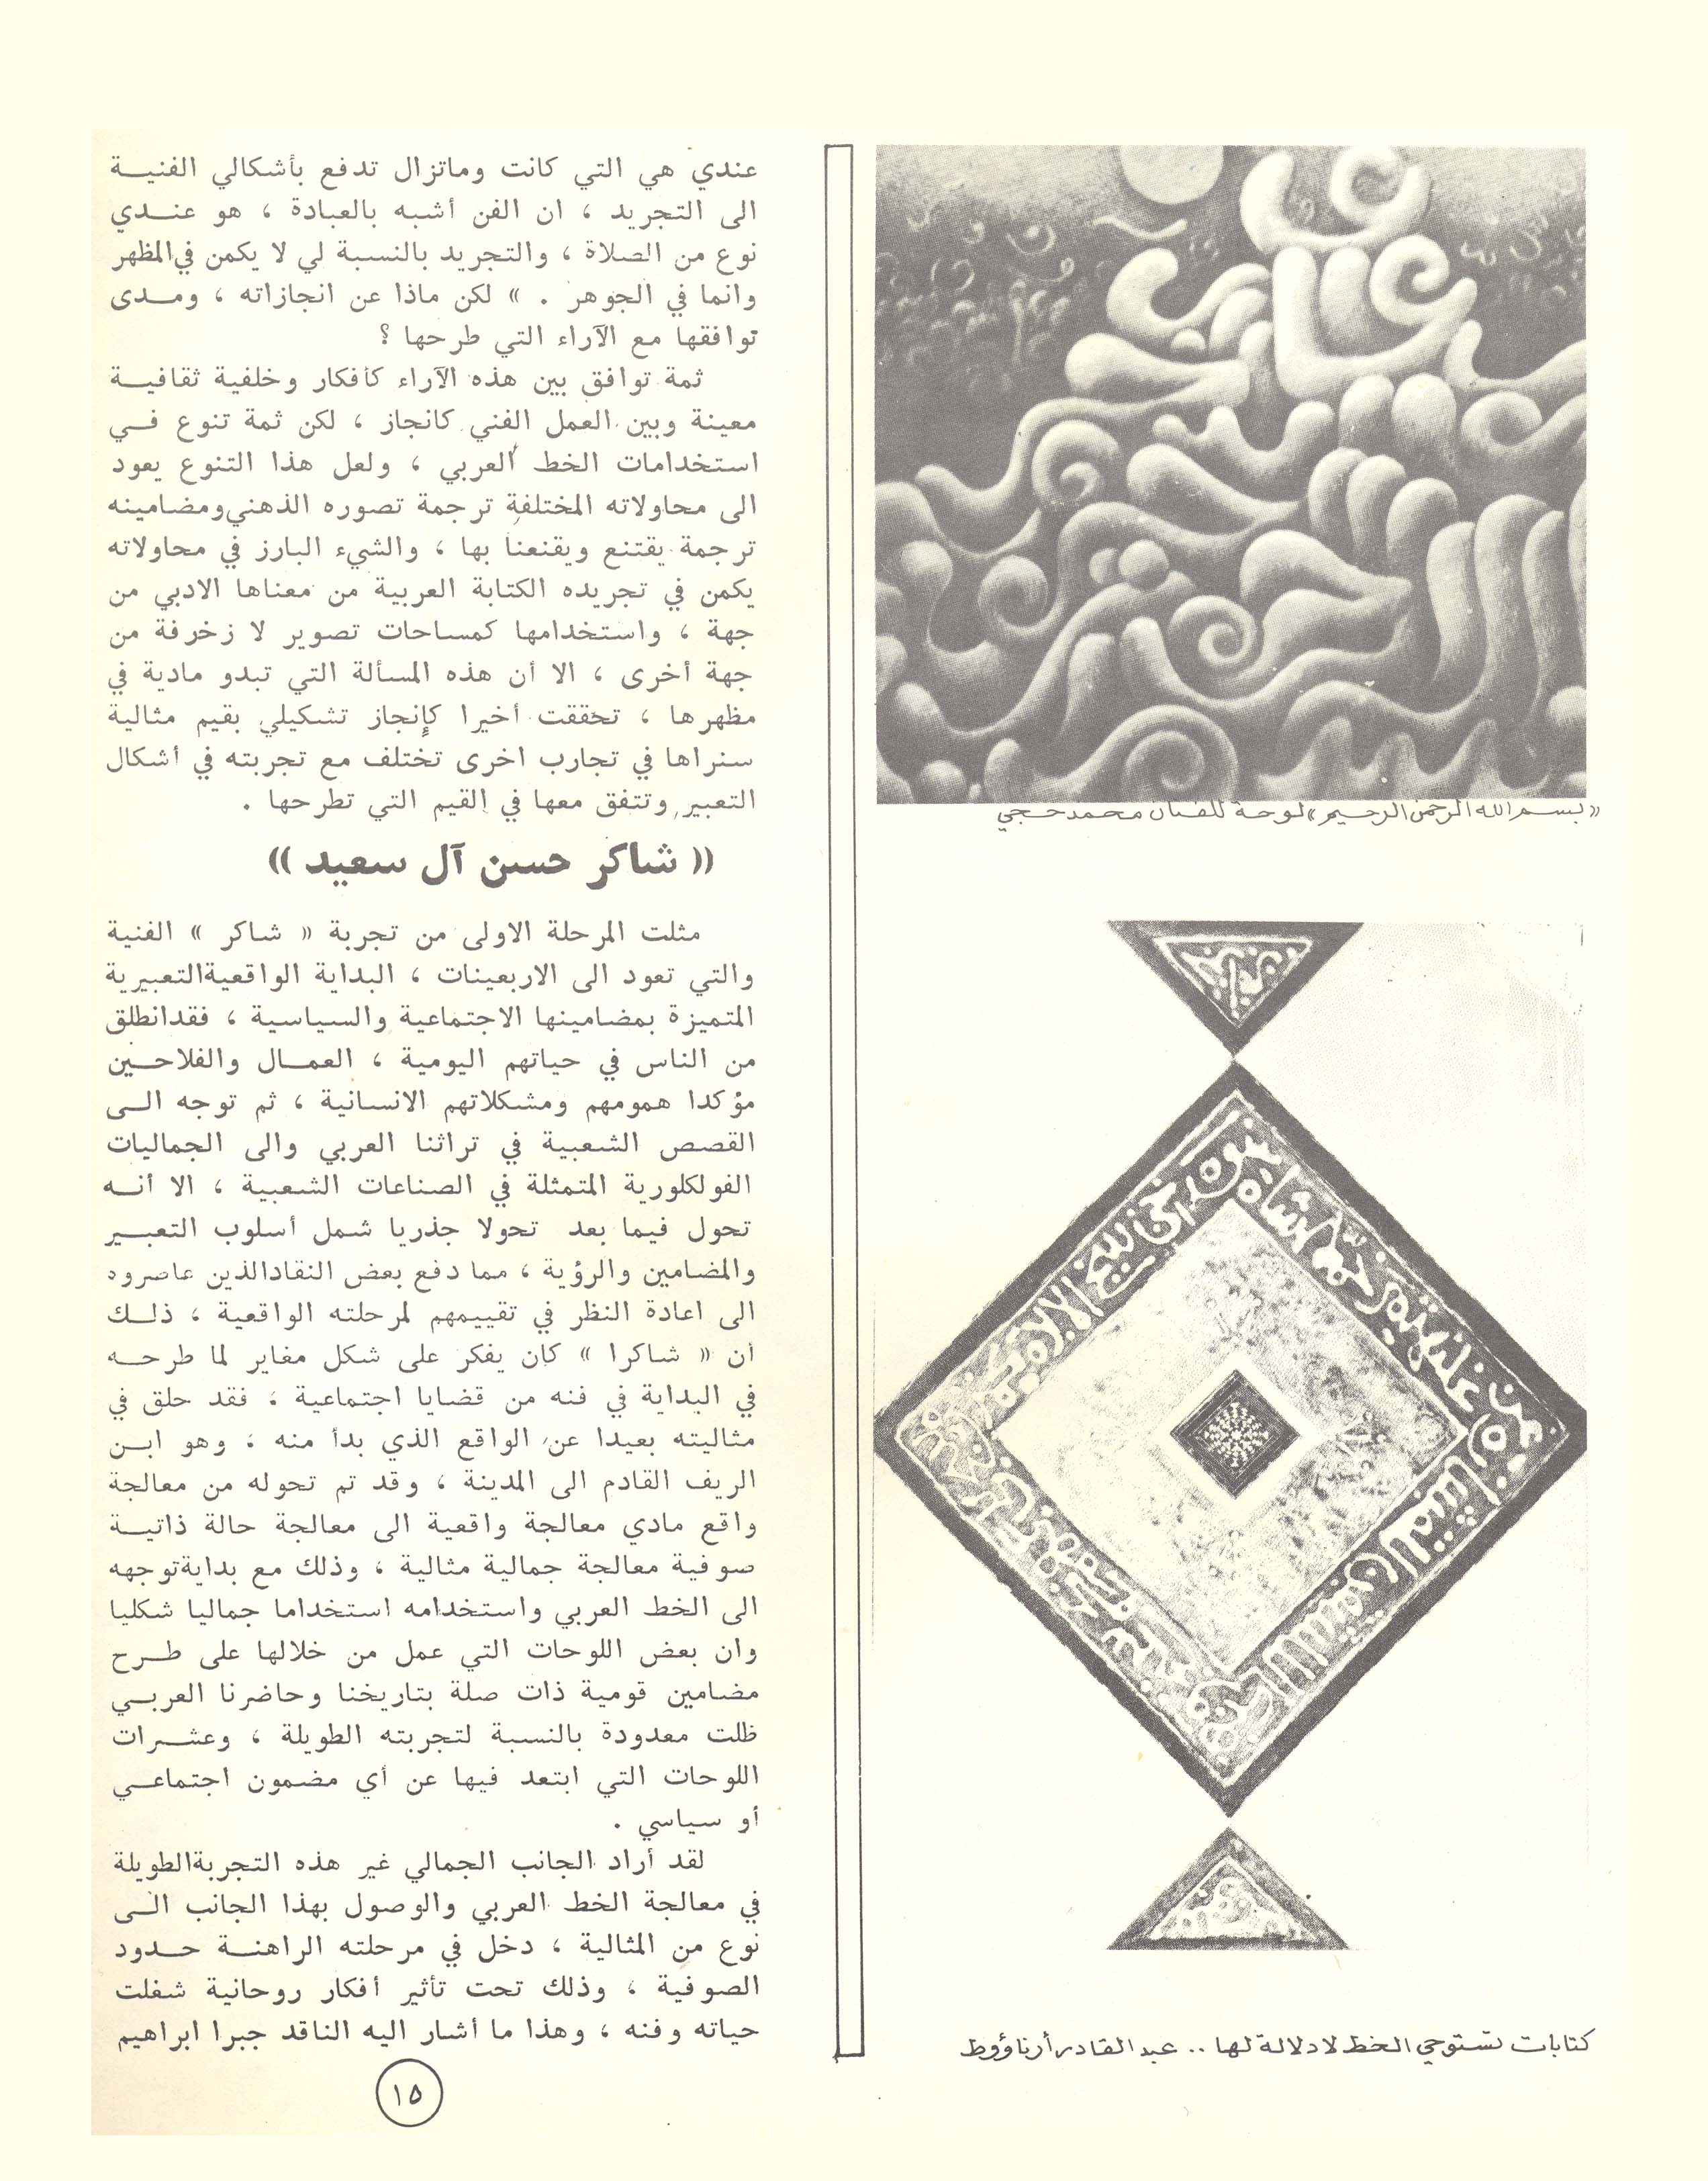 «بسم الله الرحمن الرحيم» لوحة للفنان محمد حجي
كتابات تستوحي الخط لا دلالة لها .. عبد القادر أرناؤوط
عندي هي التي كانت وماتزال تدفع بأشكالي الفنيــة
الى التجريد ، ان الفن أشبه بالعبادة ، هو عنــدي
نوع من الصلاة ، والتجريد بالنسبة لي لا يكمن في المظهر
وانما في الجوهر . » لكن ماذا عن انجازاته ، ومــدى
توافقها مع الآراء التي طرحها ؟
ثمة توافق بين هذه الآراء كأفكار وخلفية ثقافيــة
معينة وبين العمل الفني كانجاز ، لكن ثمة تنوع فــي
استخدامات الخط العربي ، ولعل هذا التنوع يعود
الى محاولاته المختلفة ترجمة تصوره الذهني ومضامينه
ترجمة يقتنع ويقنعنا بها ، والشيء البارز في محاولاته
يكمن في تجريده الكتابة العربية من معناها الادبي من
جهة ، واستخدامها كمساحات تصوير لا زخرفة من
جهة أخرى ، الا أن هذه المسألة التي تبدو مادية في
مظهرها ، تحققت أخيرا كإنجاز تشكيلي بقيم مثالية
سنراها في تجارب اخرى تختلف مع تجربته في أشكال
التعبير وتتفق معها في القيم التي تطرحها .
« شاكر حسن آل سعيد »
مثلت المرحلة الاولى من تجربة « شاكر » الفنية
والتي تعود الى الاربعينات ، البداية الواقعية التعبيرية
المتميزة بمضامينها الاجتماعية والسياسية ، فقد انطلق
من الناس في حياتهم اليومية ، العمــال والفلاحــين
مؤكدا همومهم ومشكلاتهم الانسانية ، ثم توجه الــى
القصص الشعبية في تراثنا العربي والى الجماليات
الفولكلورية المتمثلة في الصناعات الشعبية ، الا أنــه
تحول فيما بعد تحولا جذريا شمل أسلوب التعبــير
والمضامين والرؤية ، مما دفع بعض النقاد الذين عاصروه
الى اعادة النظر في تقييمهم لمرحلته الواقعية ، ذلــك
أن « شاكرا » كان يفكر على شكل مغاير لما طرحــه
في البداية في فنه من قضايا اجتماعية ، فقد حلق في
مثاليته بعيدا عن الواقع الذي بدأ منه ، وهو ابــن
الريف القادم الى المدينة ، وقد تم تحوله من معالجة
واقع مادي معالجة واقعية الى معالجة حالة ذاتيــة
صوفية معالجة جمالية مثالية ، وذلك مع بداية توجهه
الى الخط العربي واستخدامه استخداما جماليا شكليا
وان بعض اللوحات التي عمل من خلالها على طــرح
مضامين قومية ذات صلة بتاريخنا وحاضرنا العربــي
ظلت معدودة بالنسبة لتجربته الطويلة ، وعشــرات
اللوحات التي ابتعد فيها عن أي مضمون اجتماعــي
أو سياسي .
لقد أراد الجانب الجمالي غير هذه التجربة الطويلة
في معالجة الخط العربي والوصول بهذا الجانب الــى
نوع من المثالية ، دخل في مرحلته الراهنــة حــدود
الصوفية ، وذلك تحت تأثير أفكار روحانية شغلت
حياته وفنه ، وهذا ما أشار اليه الناقد جبرا ابراهيم
١٥